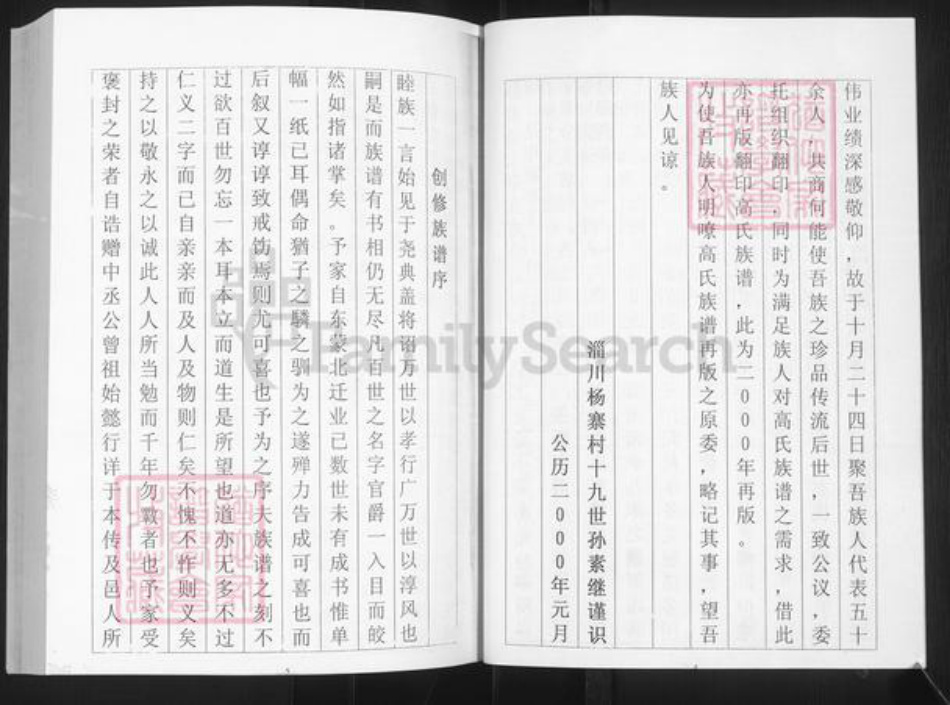 伟业绩深感敬仰，故于十月二十四日聚吾族人代表五十
余人，共商何能使吾族之珍品传流后世，一致公议，委
托组织翻印，同时为满足族人对高氏族谱之需求，借此
亦再版翻印高氏族谱，此为二000年再版。
为使吾族人明嘹高氏族谱再版之原委，略记其事，望吾
族人见谅。
淄川杨寨村十九世孙素继谨识
公历二000年元月
创修族谱序
睦族一言始见于尧典盖将诏万世以孝行广万世以淳风也
嗣是而族谱有书相仍无尽凡百世之名字官爵一入目而皎
然如指诸掌矣。予家自东蒙北迁业己数世未有成书惟单
幅一纸己耳偶命猶子之驎之驯为之遂殚力告成可喜也而
后叙又谆谆致戒饬焉则尤可喜也予为之序夫族谱之刻不
过欲百世勿忘一本耳本立而道生是所望也道亦无多不过
仁义二字而己自亲亲而及人及物则仁矣不愧不怍则义矣
持之以敬永之以诚此人人所当勉而千年勿斁者也予家受
褒封之荣者自诰赠中丞公曾祖始懿行详于本传及邑人所
FamilySearch